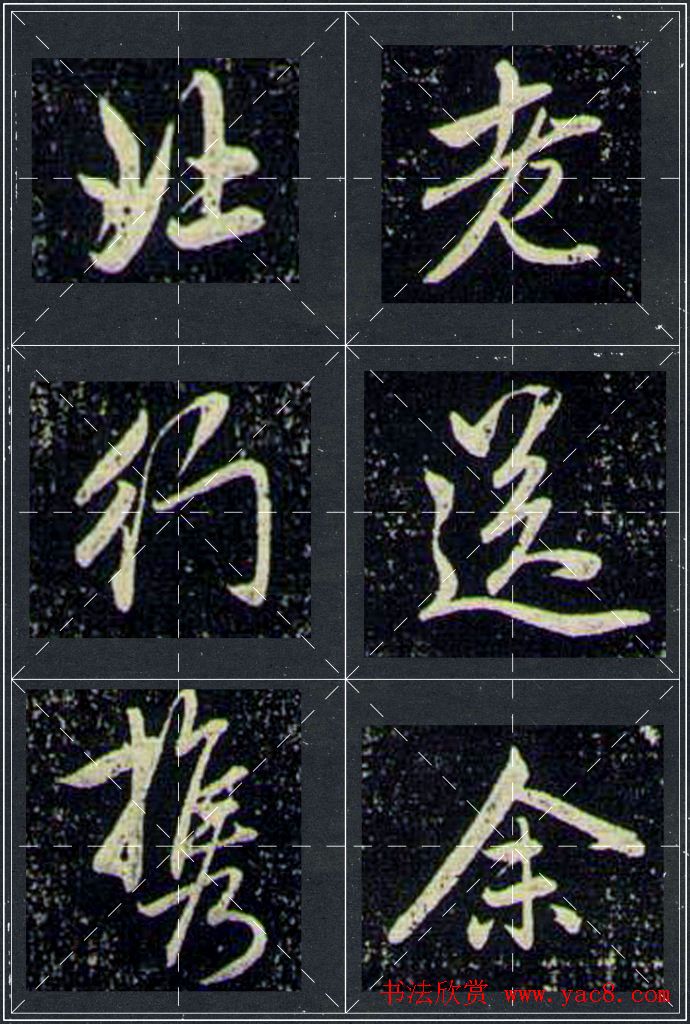 老送余
姓行携
书法欣赏 www.yac8.com